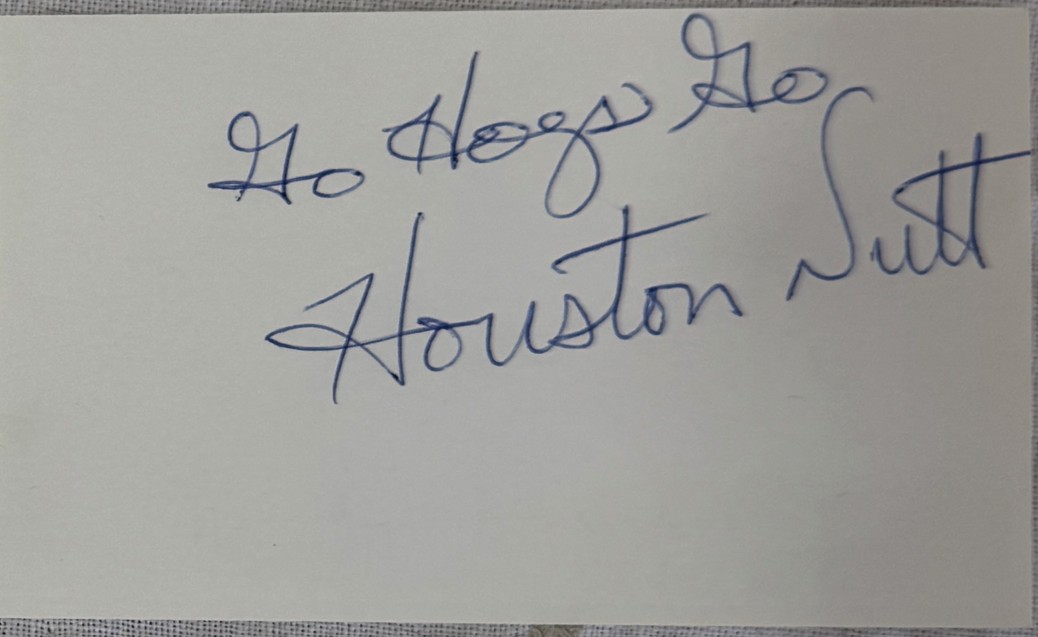 Go Hogs Go
Houston Nutt